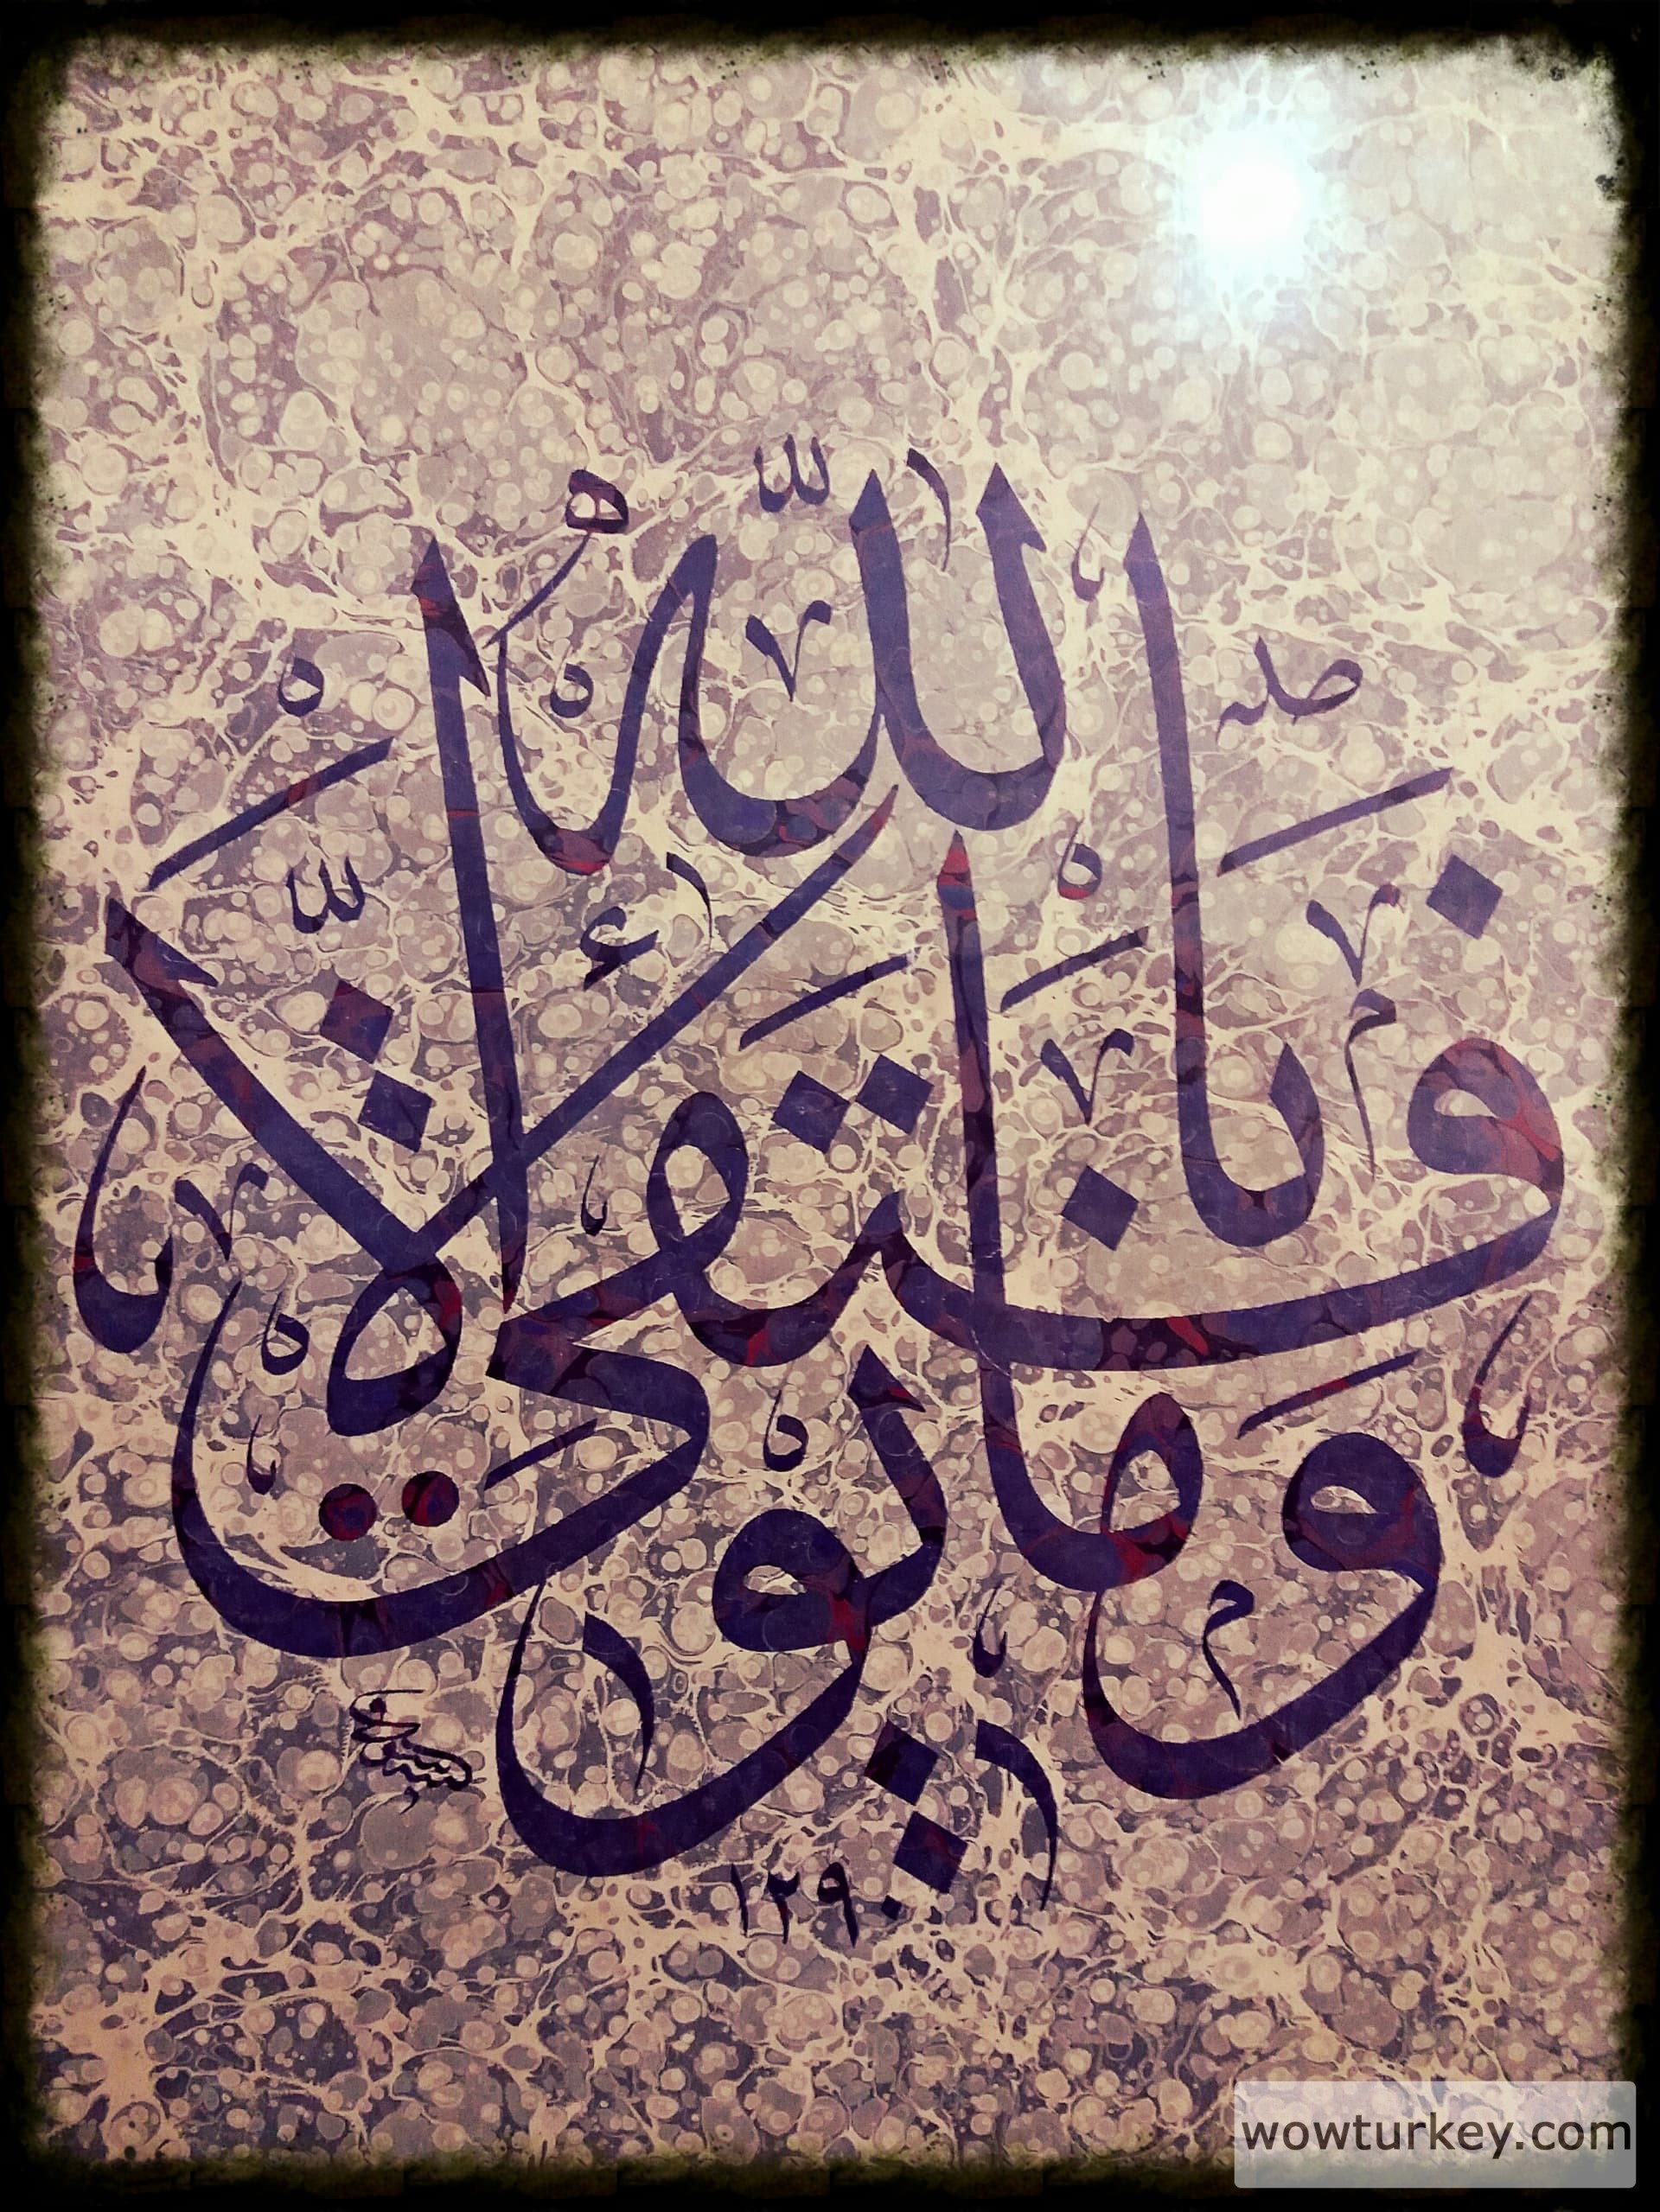 وما توفيقى الا بالله
١٢٩٠
wowturkey.com